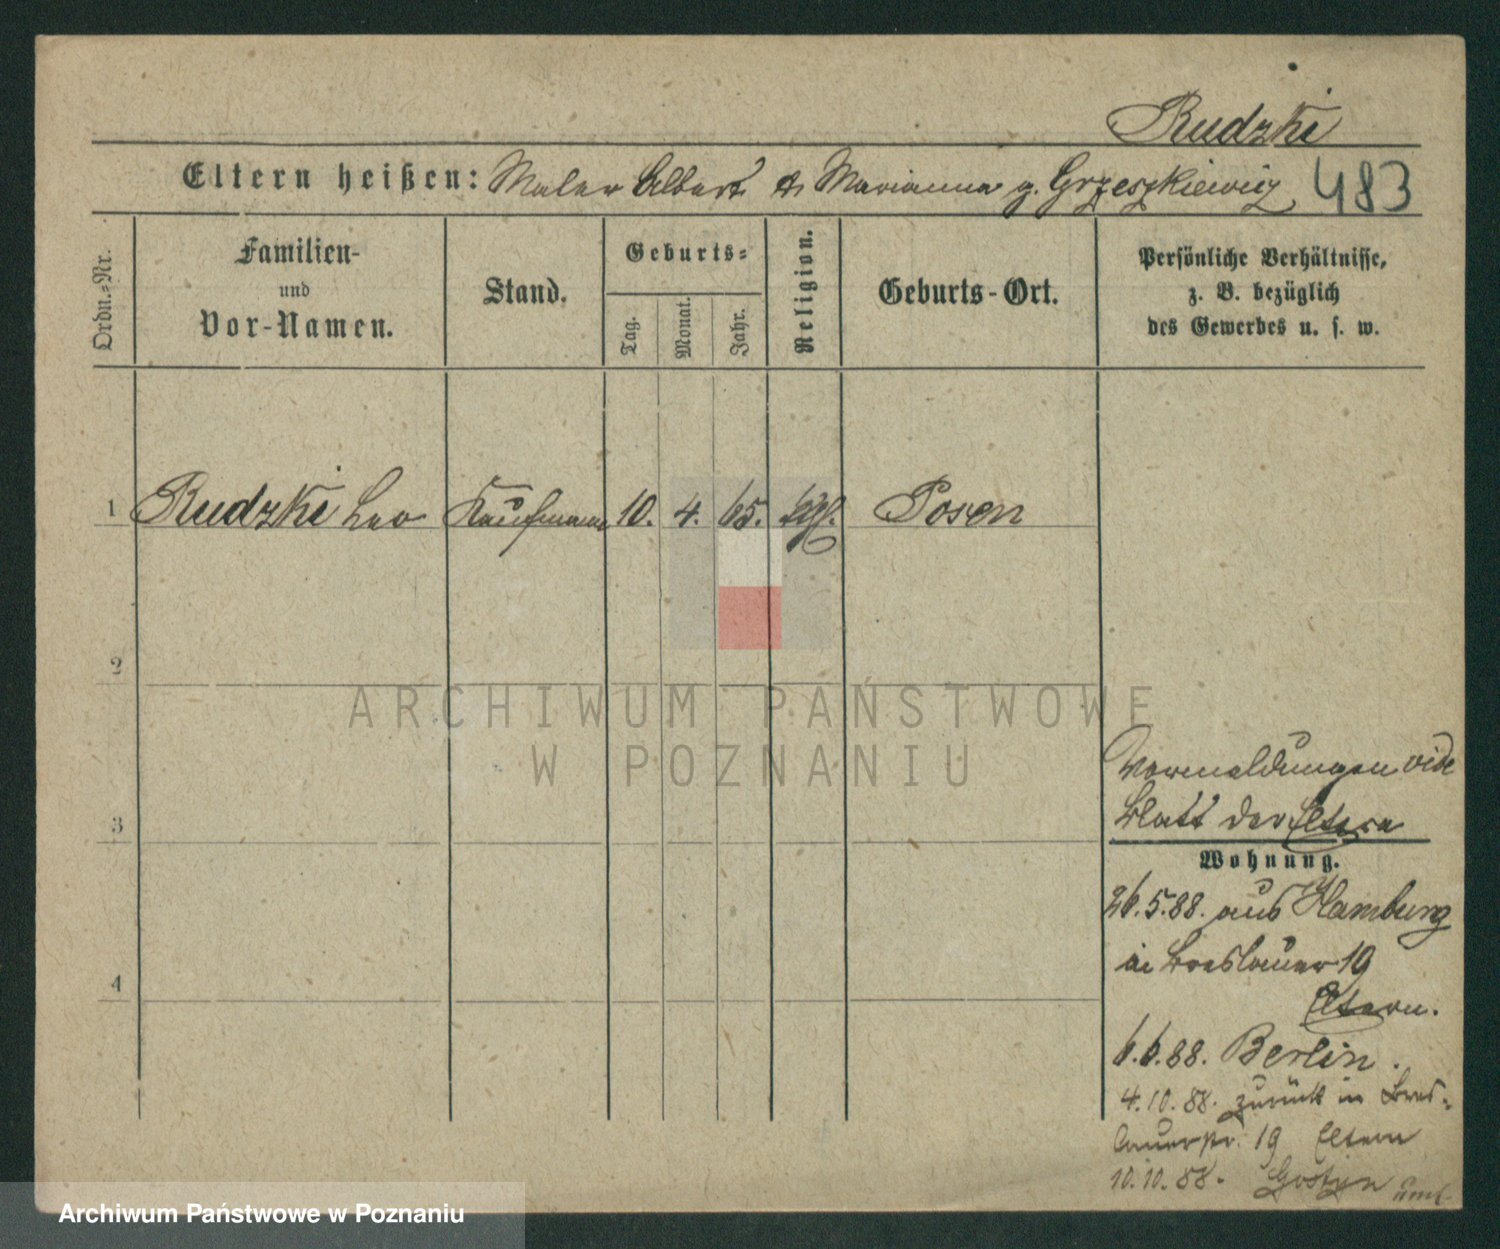 Rudzki
Eltern heißen: Maler Albert & Marianna g. Grzeszkiewicz 483
Ordn.-Nr.
Familien-
und
Vor-Namen.
Stand.
Geburts-
Tag.
Monat.
Jahr.
Religion.
Geburts-Ort.
Persönliche Verhältnisse,
z. B. bezüglich
des Gewerbes u. s. w.
1 Rudzki Leo Kaufmann 10. 4. 65. Posen
2
ARCHIWUM PAŃSTWOWE
W POZNANIU
Vormeldungen vide
3
Blatt der Eltern
Wohnung.
26.5.88. aus Hamburg
in Breslauer 19
4
Eltern.
6.6.88. Berlin.
4.10.88. zurück in Bres-
lauerstr. 19 Eltern
10.10.88. Gostyn
Archiwum Państwowe w Poznaniu